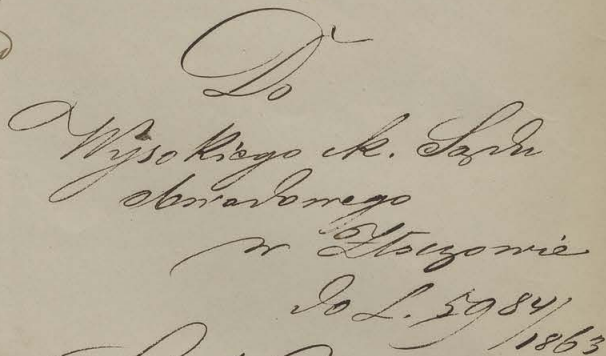 Do
Wysokiego ck. Sądu
obwodowego
w Złoczowie
do L. 5984/
1863